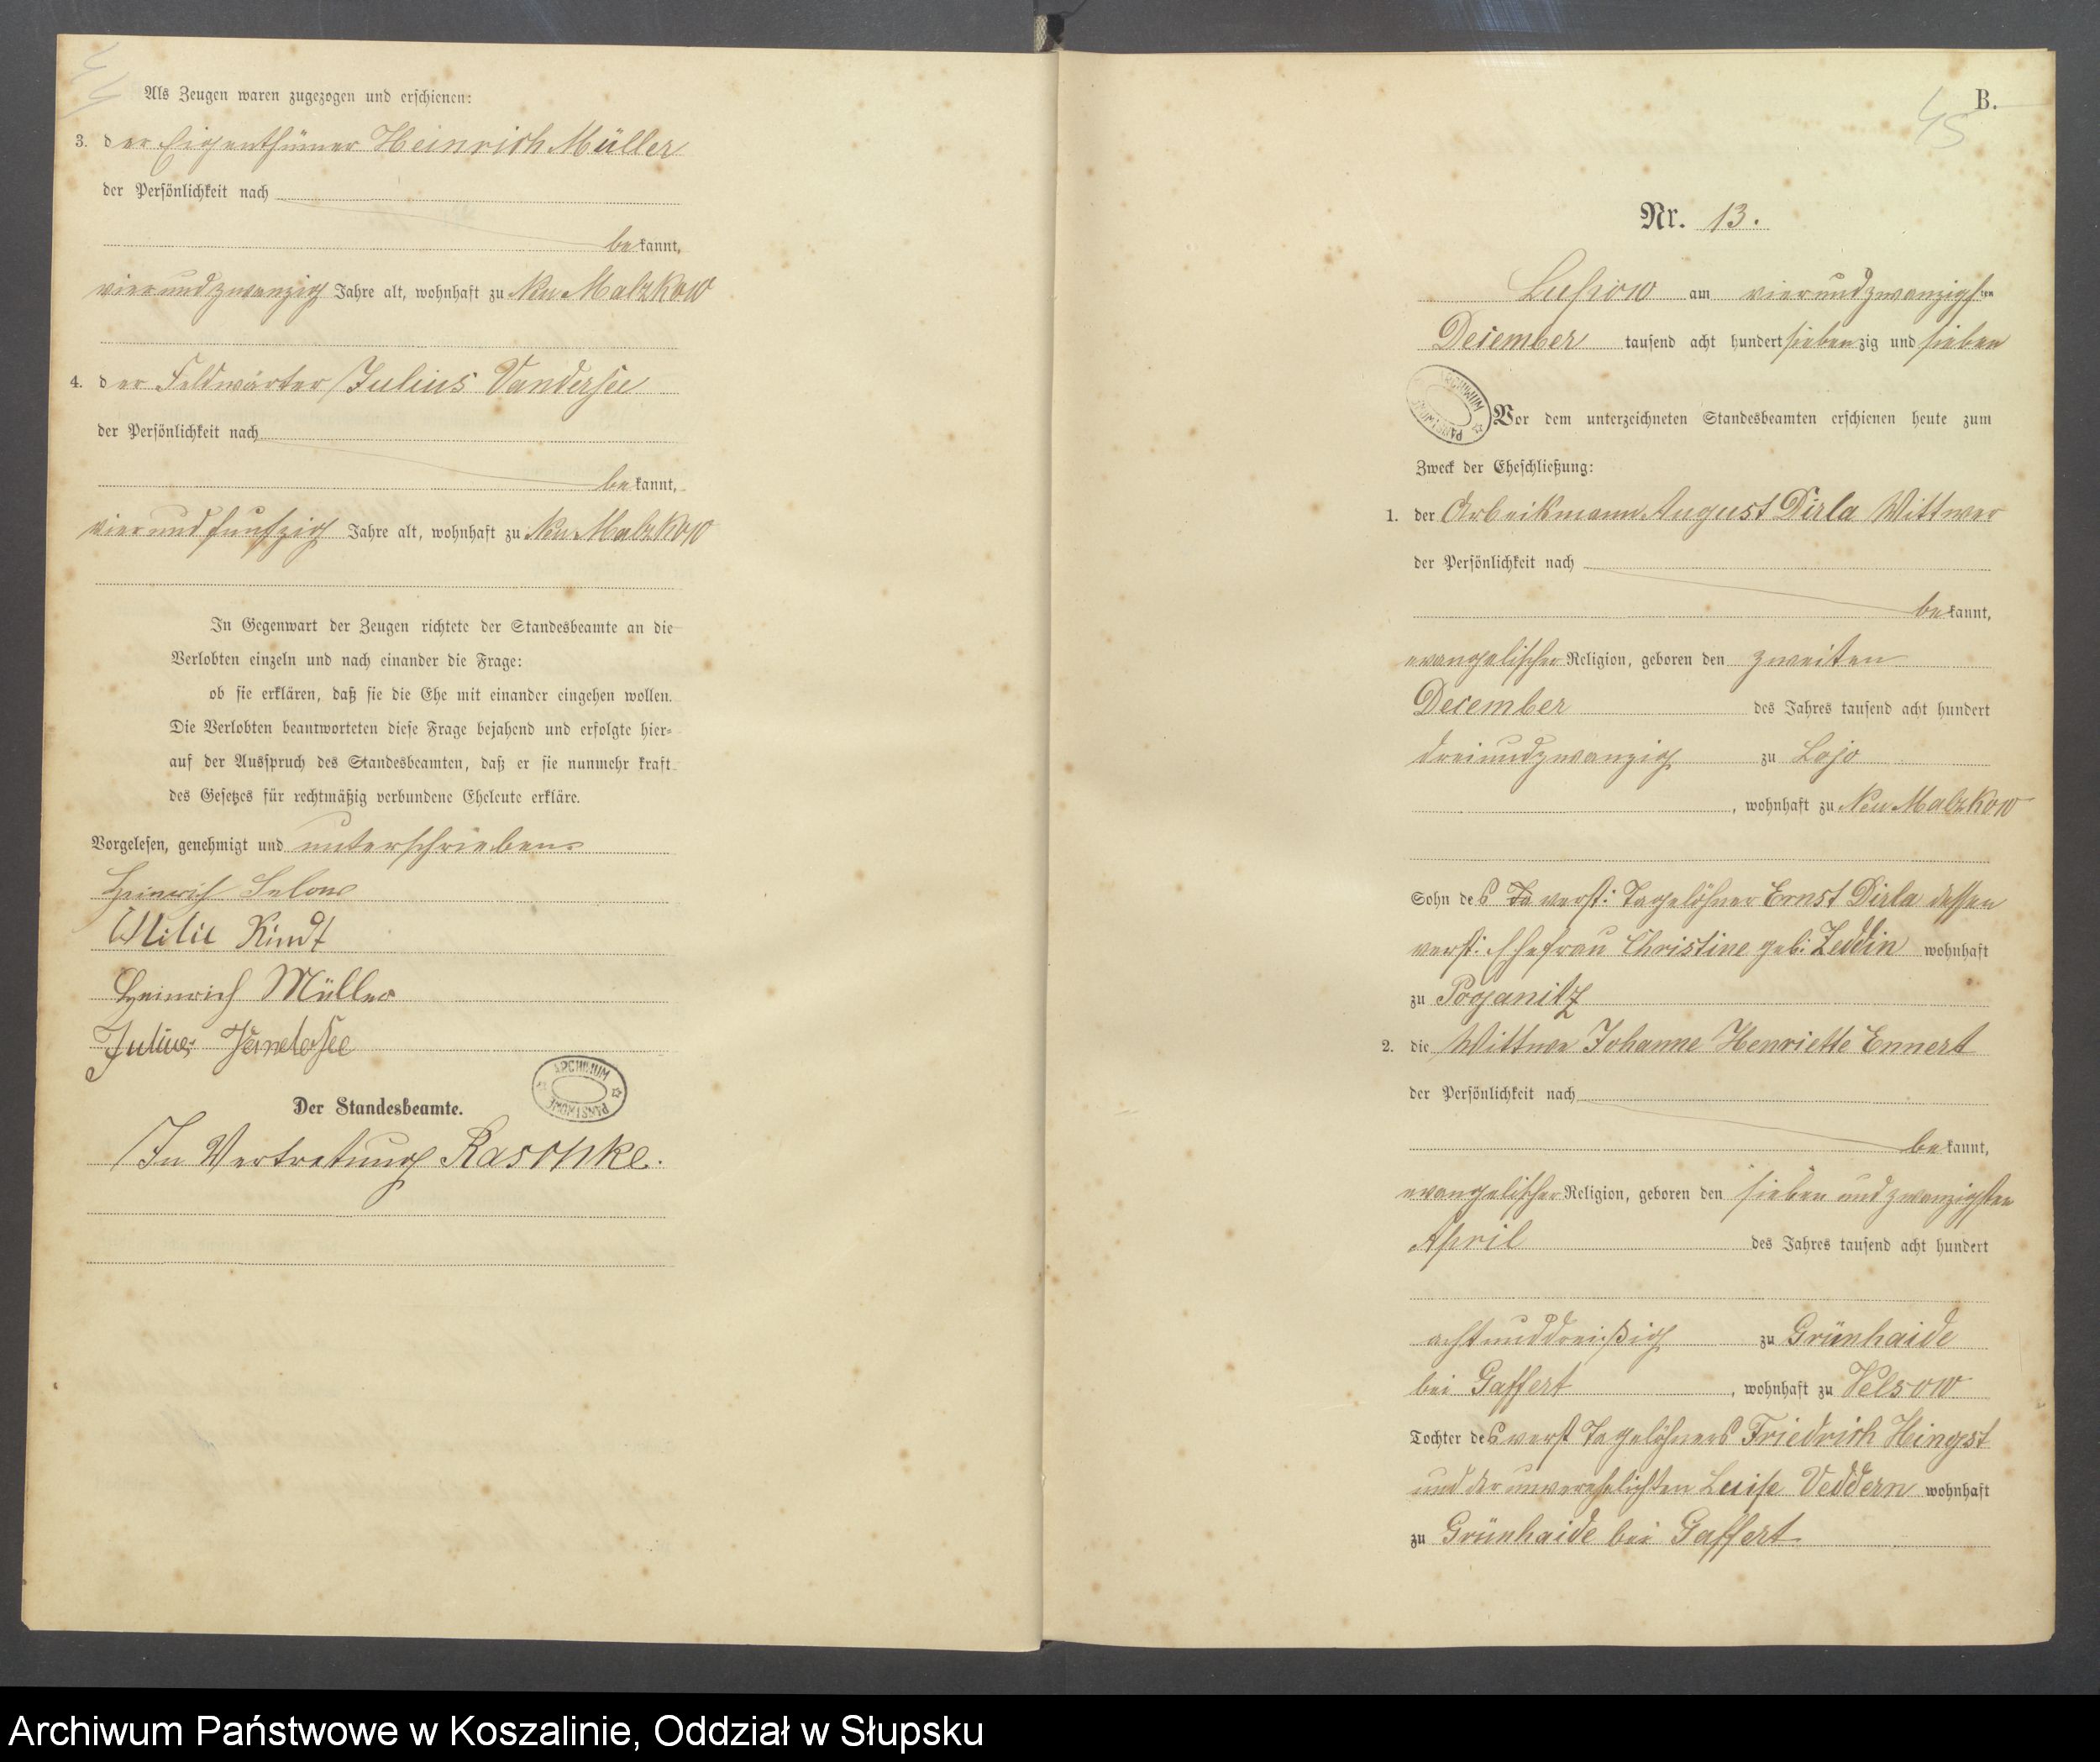 Als Zeugen waren zugezogen und erschienen:
3. der Eigenthümer Heinrich Müller
der Persönlichkeit nach
bekannt,
vierundzwanzig Jahre alt, wohnhaft zu Neu Malzkow
4. der Feldwärter Julius Vandersee
der Persönlichkeit nach
bekannt,
vierundfunfzig Jahre alt, wohnhaft zu Neu Malzkow
In Gegenwart der Zeugen richtete der Standesbeamte an die
Verlobten einzeln und nach einander die Frage:
ob sie erklären, daß sie die Ehe mit einander eingehen wollen.
Die Verlobten beantworteten diese Frage bejahend und erfolgte hier-
auf der Ausspruch des Standesbeamten, daß er sie nunmehr kraft
des Gesetzes für rechtmäßig verbundene Eheleute erkläre.
Vorgelesen, genehmigt und unterschrieben
Heinrich
Kindt
Heinrich Müller
Julius Vandersee
ARCHIWUM PAŃSTWOWE
Der Standesbeamte.
In Vertretung Raschke.
45
B.
Nr. 13.
Lupow am vierundzwanzigsten
December tausend acht hundert siebenzig und sieben
ARCHIWUM PAŃSTWOWE
Vor dem unterzeichneten Standesbeamten erschienen heute zum
Zweck der Eheschließung:
1. der Arbeitsmann August Dirla Wittwer
der Persönlichkeit nach
bekannt,
evangelischer Religion, geboren den zweiten
December des Jahres tausend acht hundert
dreiundzwanzig zu Lojo
, wohnhaft zu Neu Malzkow
Sohn des verst: Tagelöhner Ernst Dirla dessen
verst: Ehefrau Christine geb: Zeddin wohnhaft
zu Poganitz
2. die Wittwe Johanne Henriette Ennert
der Persönlichkeit nach
bekannt,
evangelischer Religion, geboren den sieben und zwanzigsten
April des Jahres tausend acht hundert
achtunddreißig zu Grünhaide
bei Gaffert, wohnhaft zu Velsow
Tochter des verst Tagelöhners Friedrich Hingst
und der unverehelichten Luise Veddern wohnhaft
zu Grünhaide bei Gaffert
Archiwum Państwowe w Koszalinie, Oddział w Słupsku